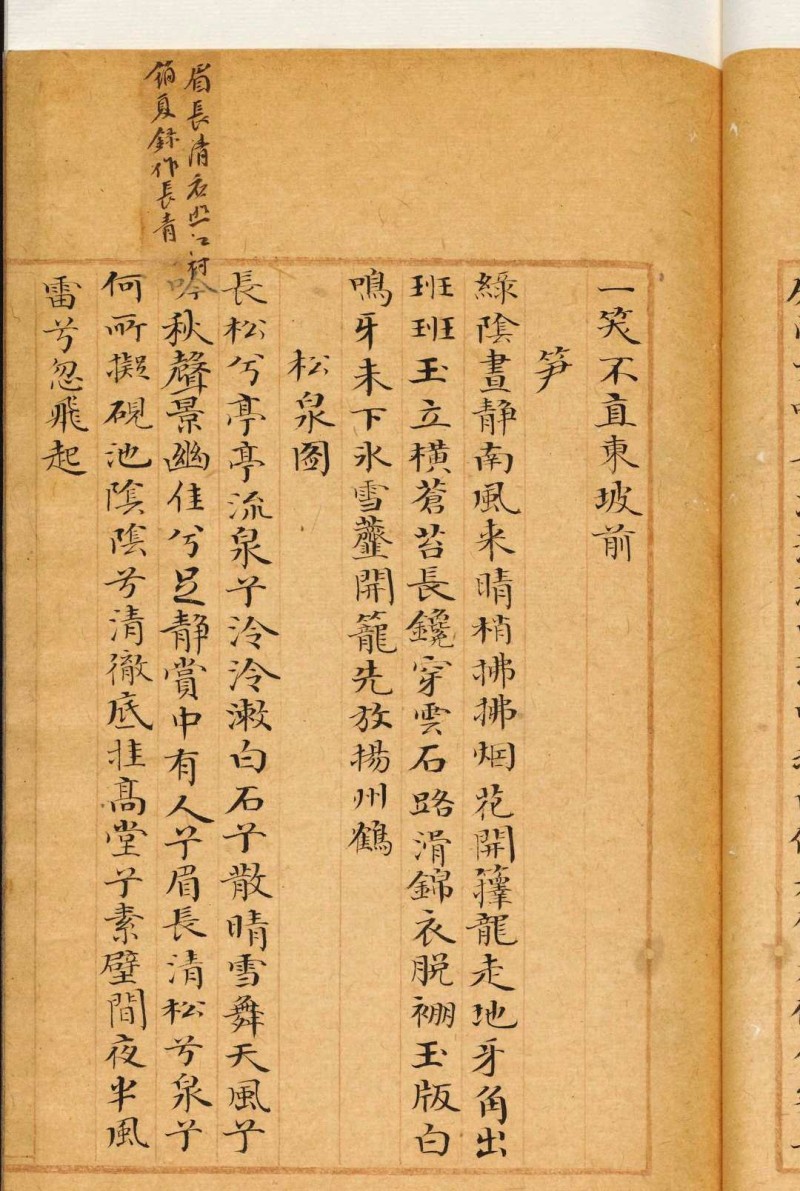 一笑不直東坡前
笋
綠陰晝静南風来晴梢拂拂烟花開籜龍走地牙角出
班班玉立橫蒼苔長鑱穿雲石路滑錦衣脱棚玉版白
鳴牙未下氷雪虀開籠先放揚州鶴
松泉圖
長松兮亭亭流泉兮泠泠漱白石兮散晴雪舞天風兮
吟秋聲景幽佳兮足静賞中有人兮眉長清松兮泉兮
何所擬硯池陰陰兮清徹底挂髙堂兮素壁間夜半風
雷兮忽飛起
眉長清
作長青